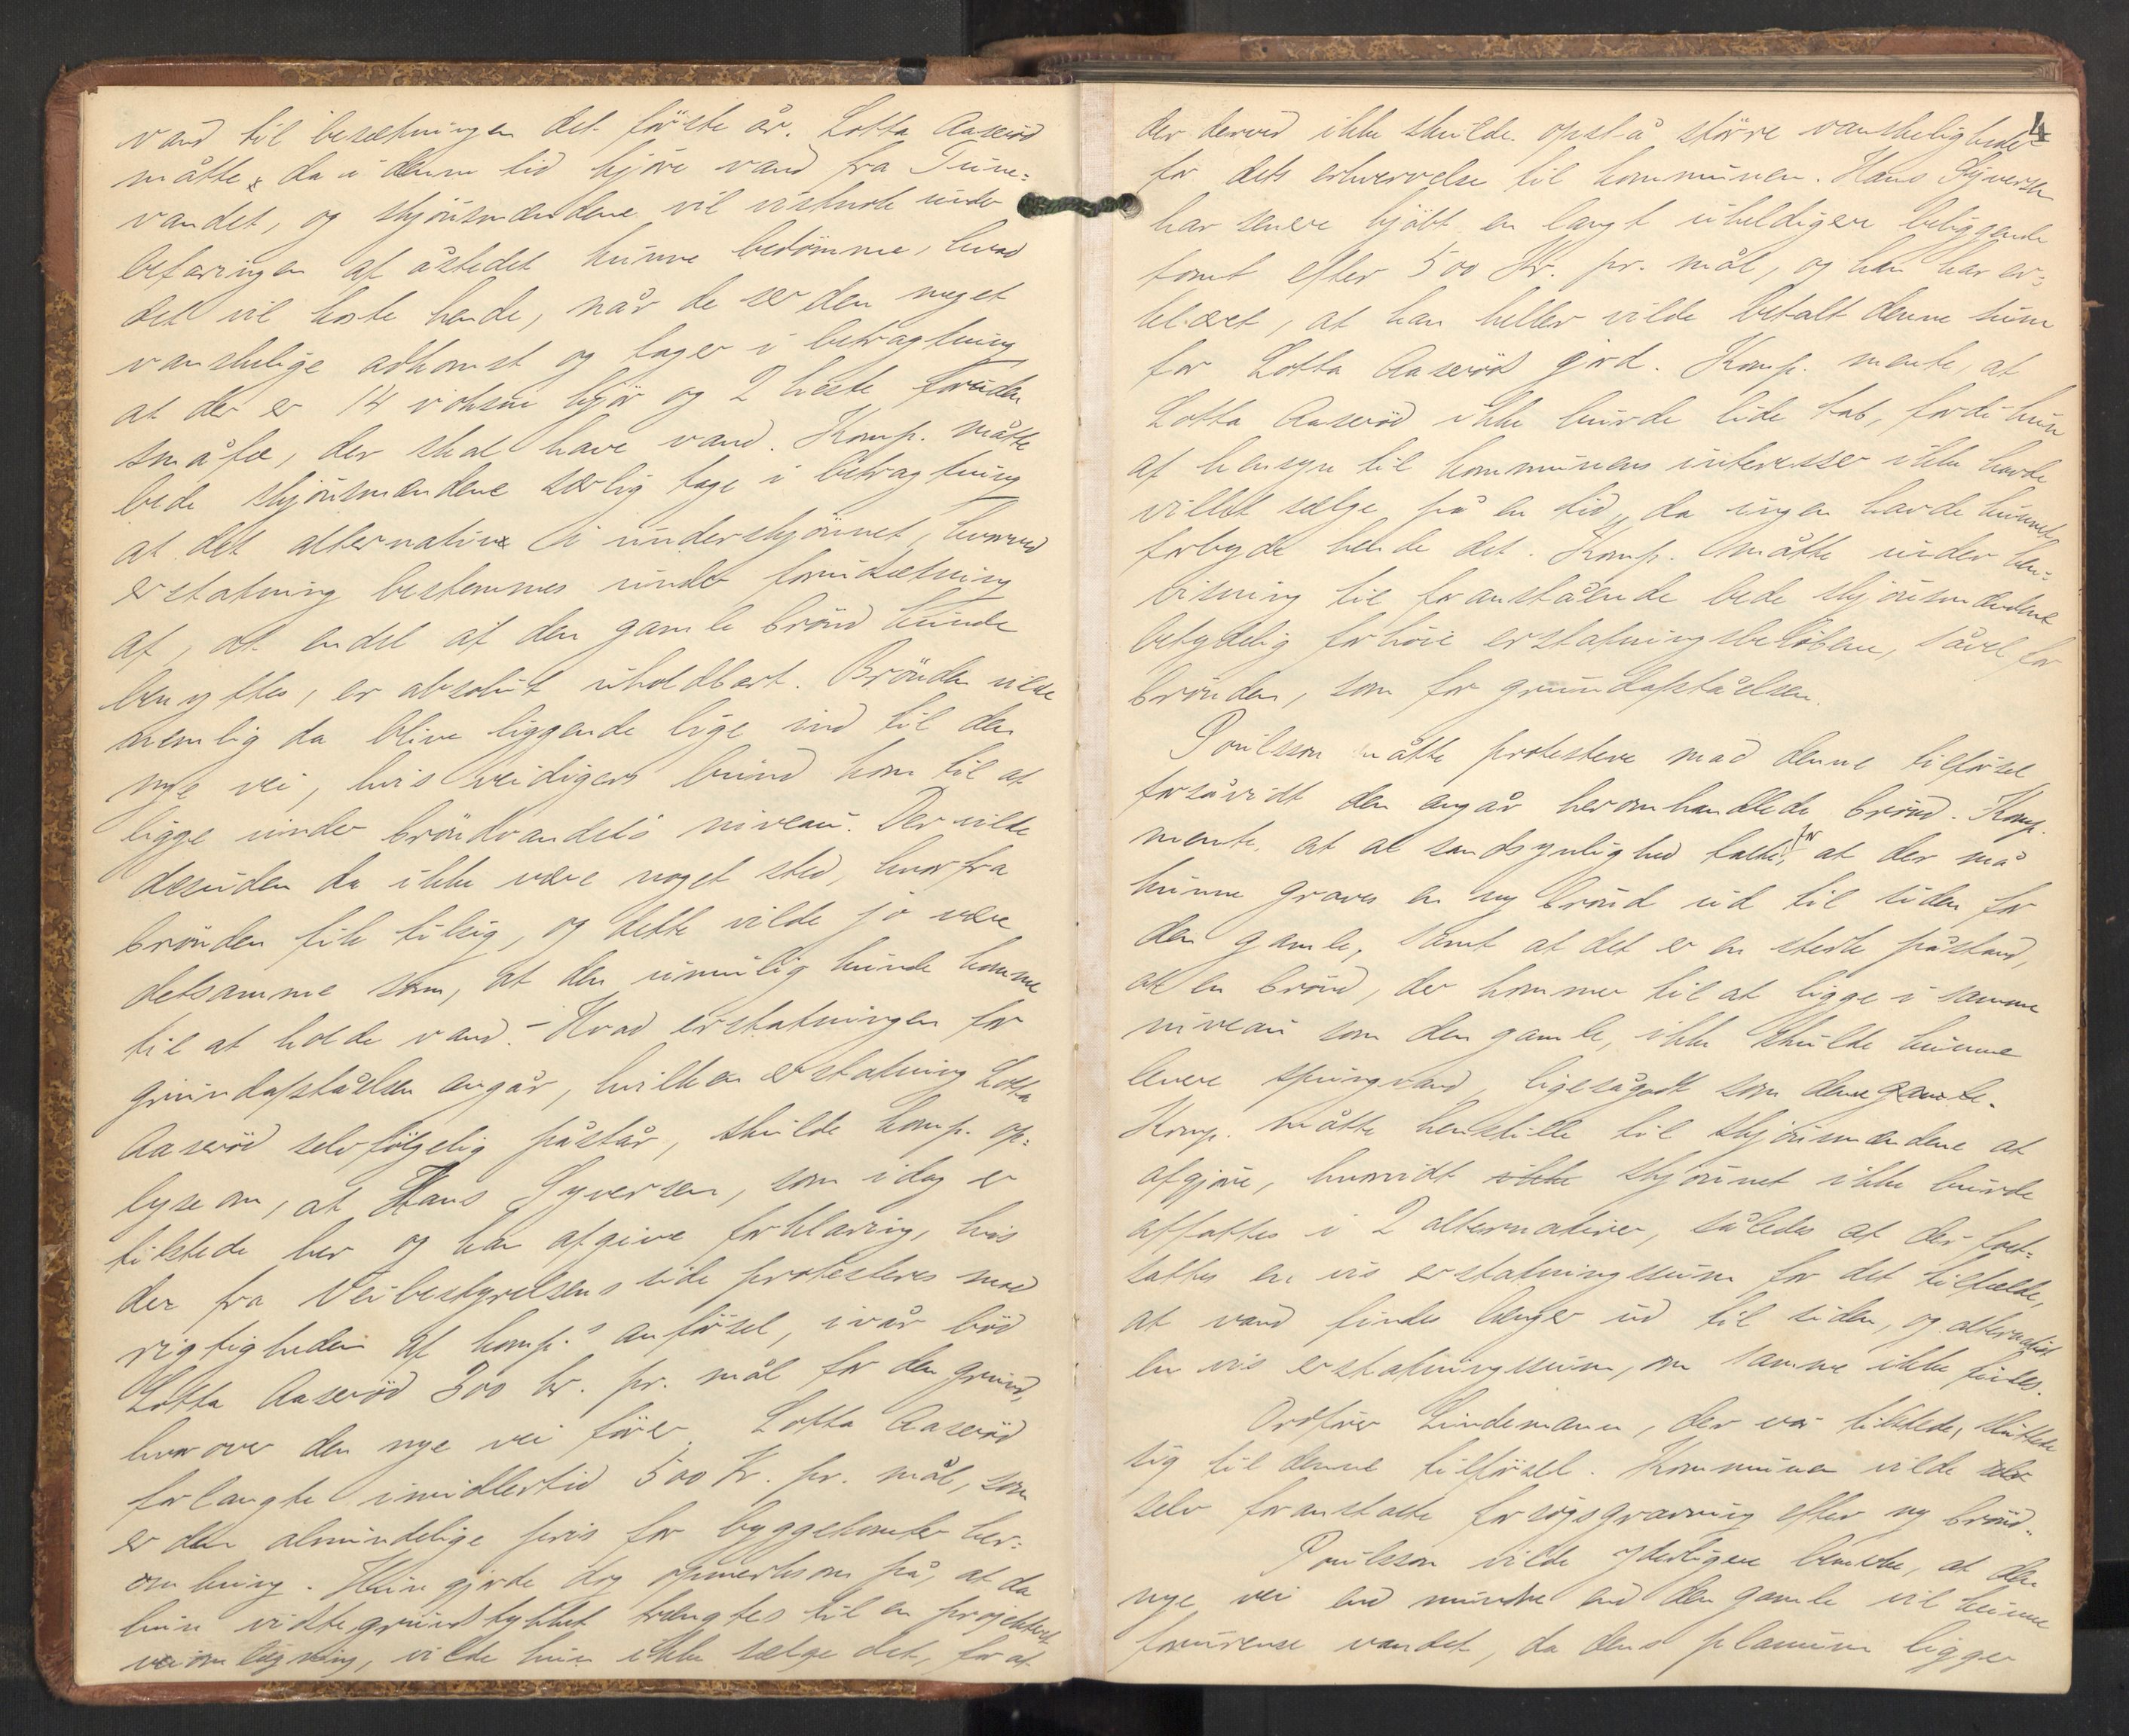 vand til besætningen det första år. Lotta Aaserød
måtte da i denne tid kjöre vand fra Tune-
vandet, og skjönsmændene vil vistnok under
befaringen af åstedet kunne bedömme, hvad
det vil koste hende, når de ser den meget
vanskelige adkomst og tager i betragtning
at der er 14 voksne kjör og 2 heste foruden
småfæ, der skal have vand. Komp. måtte
bede skjönsmændene særlig tage i betragtning
at det alternativ i underskjönnet, hvorved
erstatning bestemmes under forudsætning
af, at endel af den gamle brönd kunde
benyttes, er absolut uholdbart. Brönden vilde
nemlig da blive liggende lige ind til den
nye vei, hvis veidiges bund kom til at
ligge under bröndvandets niveau. Der vilde
desuden da ikke være noget sted, hvorfra
brönden fik tilsig, og dette vilde jo være
detsamme som, at den umulig kunde komme
til at holde vand. – Hvad erstatningen for
grundafståelsen angår, hvilken erstatning Lotta
Aaserød selvfölgelig påstår, skulde komp. op-
lyse om, at Hans Syversen, som idag er
tilstede her og kan afgive forklaring, hvis
der fra Veibestyrelsens side protesteres mod
rigtigheden af komp.s anförsel, ivår bød
Lotta Aaserød 300 kr. pr. mål for den grund,
hvorover den nye vei förer. Lotta Aaserød
forlangte imidlertid 500 Kr. pr. mål, som
er den almindelige pris for byggetomter her-
omkring. Hun gjorde dog opmerksom på, at da
hun vidste, grundstykket trængtes til en projekteret
veiomlægning, vilde hun ikke sælge det, for at
4
der derved ikke skulde opstå större vanskeligheder
for dets erhvervelse til kommunen. Hans Syversen
har senere kjöbt en langt uheldigere beliggende
tomt efter 500 Kr. pr. mål, og han har er-
klæret, at han heller vilde betalt denne sum
for Lotta Aaserøds jord. Komp. mente, at
Lotta Aaserød ikke burde lide tab, fordi hun
af hensyn til kommunens interesser ikke havde
villet sælge på en tid, da ingen havde kunnet
forbyde hende det. Komp. måtte under hen-
visning til foranstående bede skjönsmændene
betydelig forhöie erstatningsbelöbene, såvel for
brönden, som for grundafståelsen.
Poulsson måtte protestere mod denne tilförsel,
forsåvidt den angår heromhandlede brönd. Komp.
mente, at al sandsynlighed taler for at der må
kunne graves en ny brönd ud til siden for
den gamle, samt at det er en sterk påstand,
at en brönd, der kommer til at ligge i samme
niveau som den gamle, ikke skulde kunne
levere springvand, ligesågodt som den gamle.
Komp. måtte henstille til skjönsmændene at
afgjöre, hvorvidt ikke skjönnet ikke burde
affattes i 2 alternativer, således at der fast-
sattes en vis erstatningssum for det tilfælde,
at vand findes længer ud til siden, og alternativt
en vis erstatningssum, om samme ikke findes.
Ordförer Lindemann, der var tilstede, sluttede
sig til denne tilförsel. Kommunen vilde selv
selv foranstalte forsögsgravning efter ny brönd.
Poulsson vilde yderligere bemerke, at den
nye vei end mindre end den gamle vil kunne
forurense vandet, da dens planum ligger